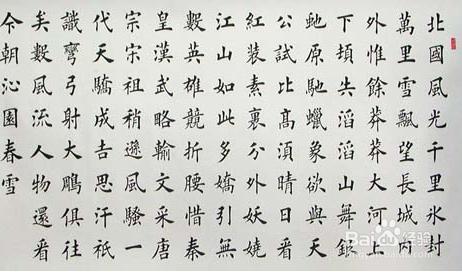 北國風光千里冰封
萬里雪飄望長城内
外惟餘莽莽大河上
下頓失滔滔山舞銀
蛇原馳蠟象欲與天
公試比高須晴日看
紅装素裹分外妖嬈
江山如此多嬌引無
數英雄競折腰惜秦
皇漢武略輸文采唐
宗宋祖稍遜風騷一
代天驕成吉思汗祇
識彎弓射大鵰俱往
矣數風流人物還看
今朝沁園春雪